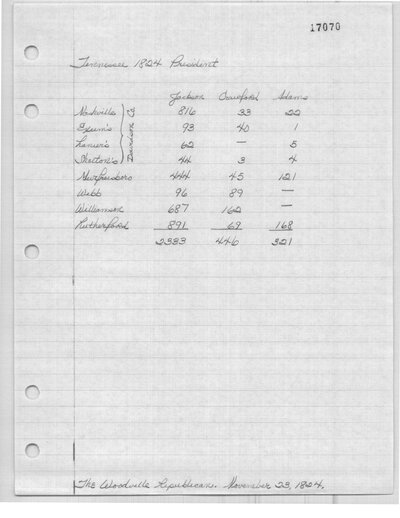 17070
Tennessee 1824 President
Jackson Crawford Adams
Nashville 816 33 22
Exum's 93 40 1
Lanier's 62 — 5
44 3 4
Davidson Co.
Murfreesboro 444 45 121
Webb 96 89 —
Williamson 687 162 —
Rutherford 891 69 168
2383 446 321
The Woodville Republican. November 23, 1824.